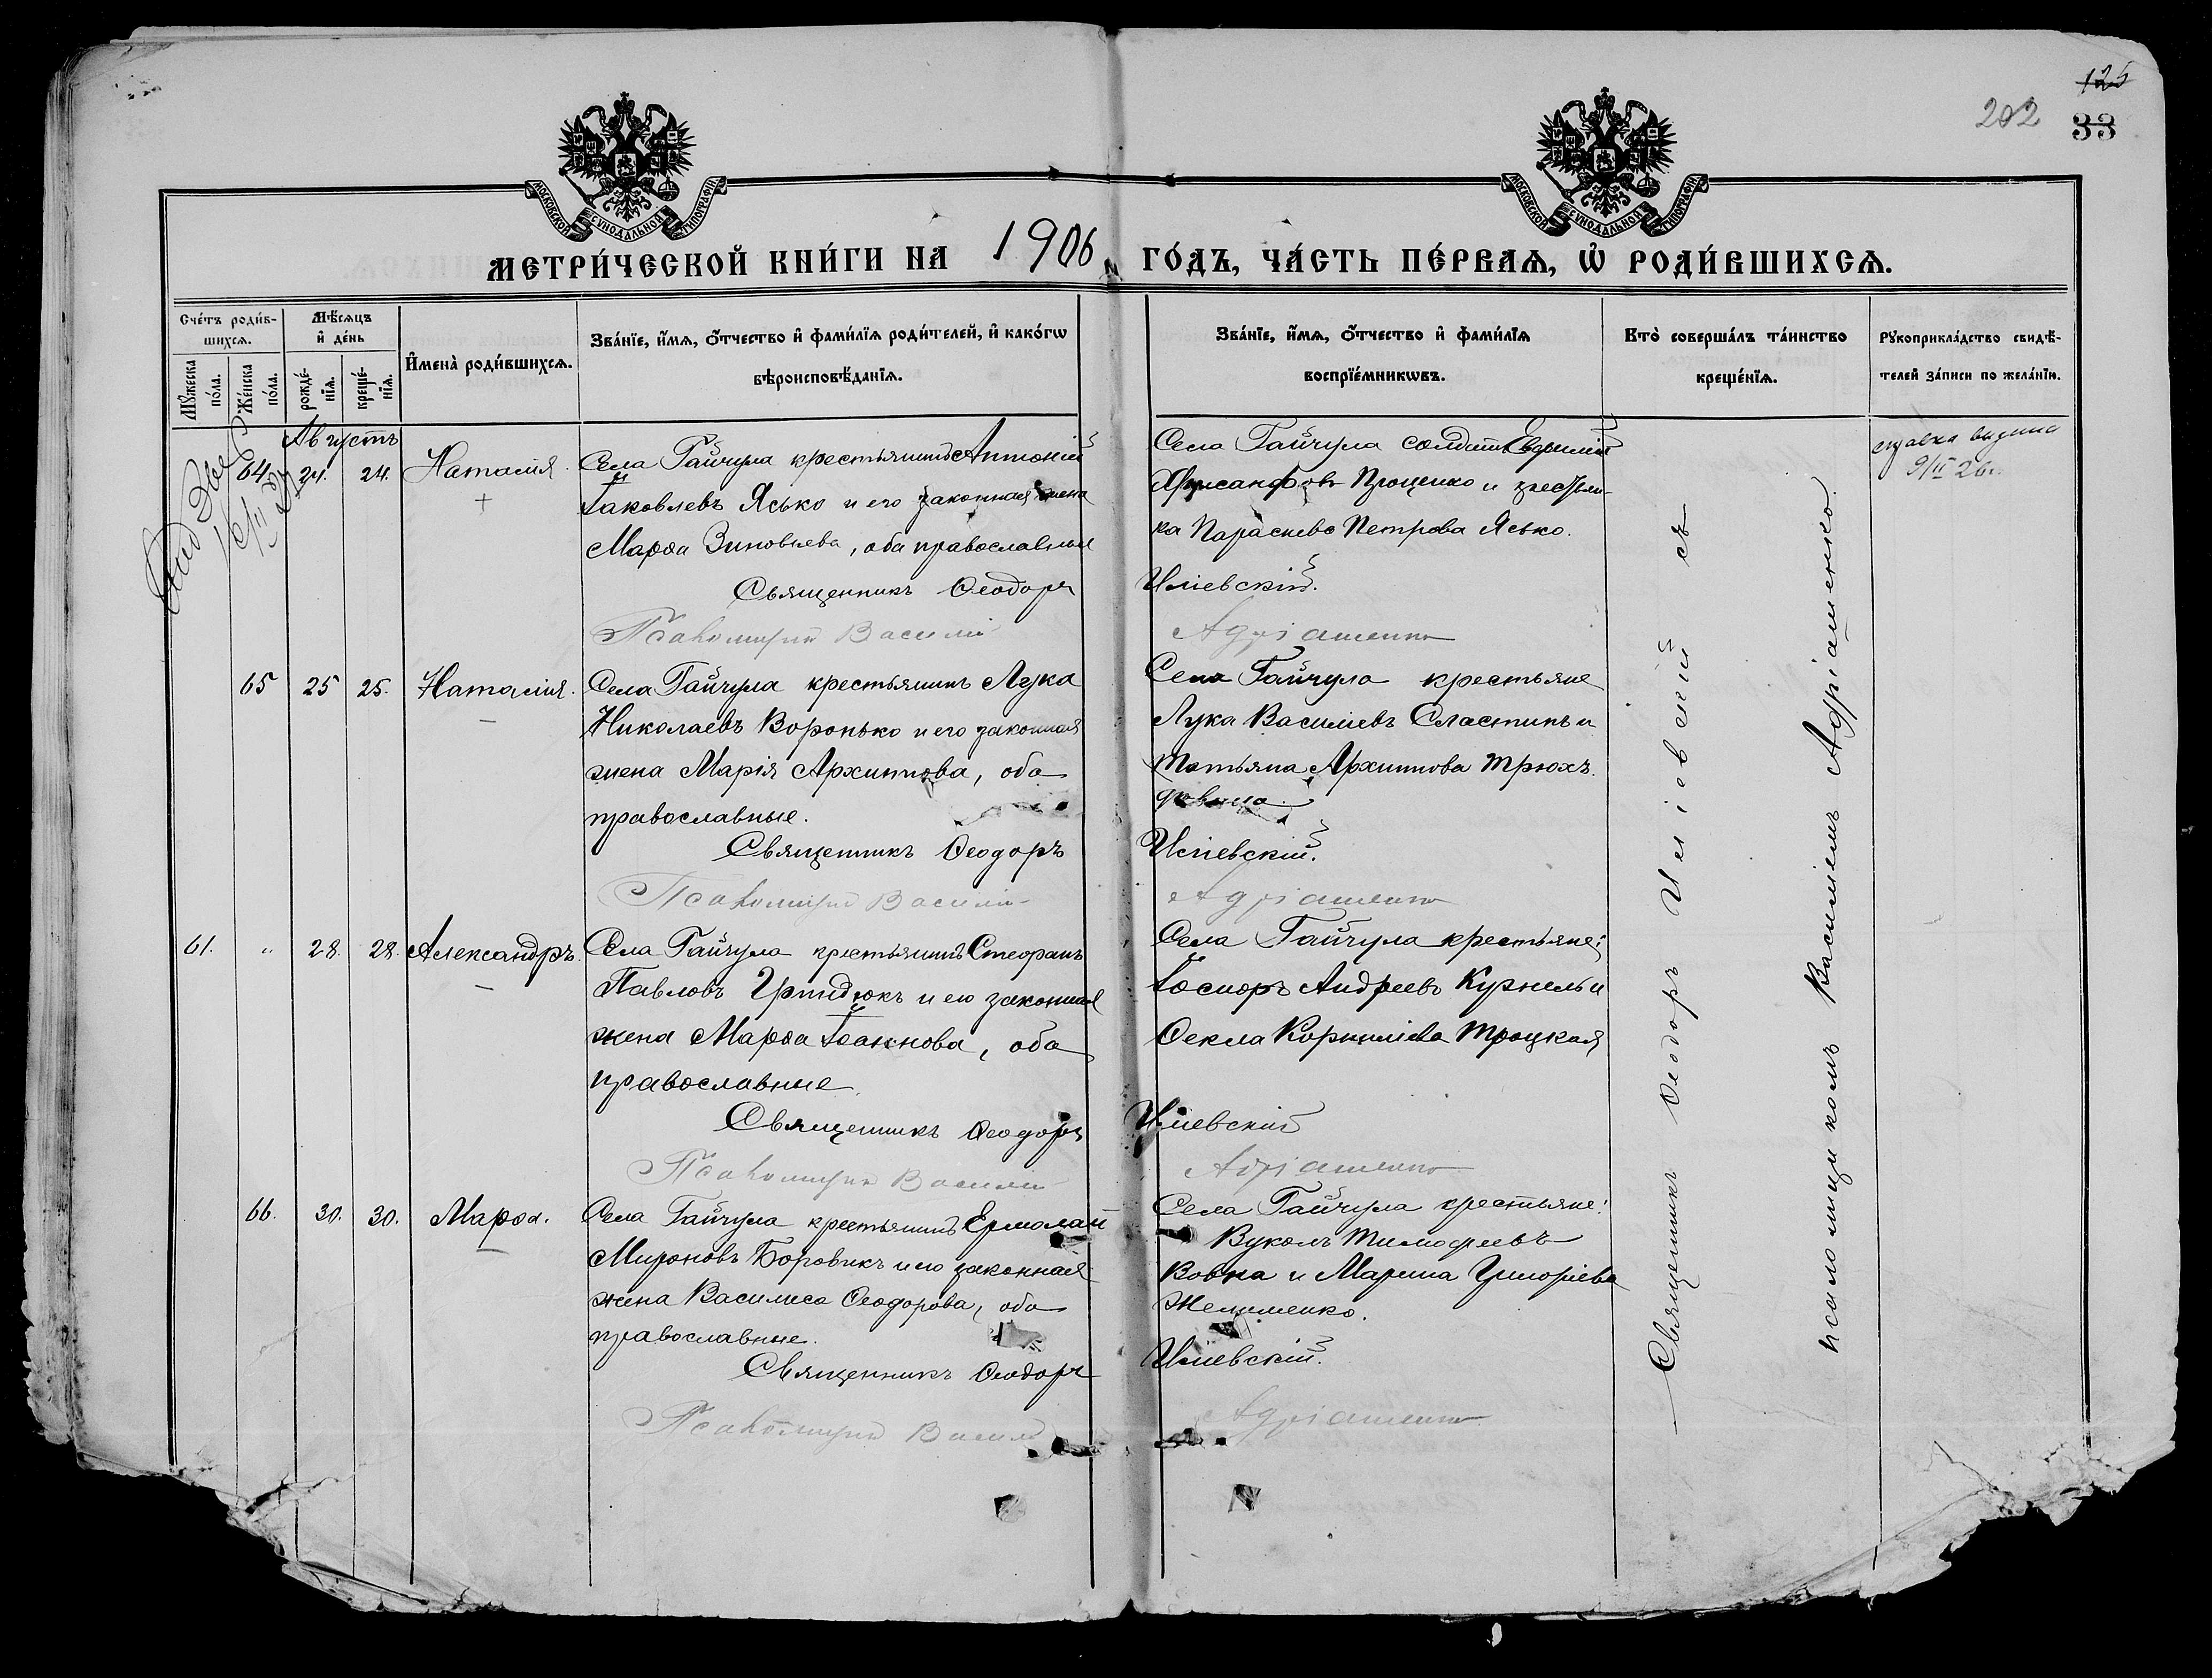 125
202 33
МОСКОВСКОЙ СѴНОДАЛЬНОЙ ТИПОГРАФІИ.
МОСКОВСКОЙ СѴНОДАЛЬНОЙ ТИПОГРАФІИ.
МЕТРИ́ЧЕСКОЙ КНИ́ГИ НА 1906 ГО́ДЪ, ЧА́СТЬ ПЕ́РВАѦ, Ѡ РОДИ́ВШИХСѦ.
Сче́тъ роди́в-
шихсѧ.
Мꙋжеска по́ла.
Же́нска по́ла.
Мѣ́сѧцъ и҆ де́нь
рожде́-
нїѧ.
креще́-
нїѧ.
И҆мена̀ роди́вшихсѧ.
Зва́нїе, и҆́мѧ, ѻ҆́тчество и҆ фами́лїѧ роди́телей, и҆ како́гѡ
вѣроисповѣ́данїѧ.
Зва́нїе, и҆́мѧ, ѻ҆́тчество и҆ фами́лїѧ
воспрїе́мникѡвъ.
Кто̀ соверша́лъ та́инство
креще́нїѧ.
Рꙋкоприкла́дство свидѣ́-
телей за́писи по жела́нїю.
Августъ
64 24. 24. Наталія.
Села Гайчула крестьянинъ Антоній
Іаковлевъ Ясько и его законная жена
Марѳа Зиновьева, оба православные
Священникъ Ѳеодоръ
Псаломщикъ Василій
Села Гайчула солдатъ Евфимій
Проценко и крестьян-
ка Параскева Петрова Ясько.
Иліевскій.
Адріашенко
9/II 26
65 25 25. Наталія.
Села Гайчула крестьянинъ Лука
Николаевъ Воронько и его законная
жена Марія Архиппова, оба
православные.
Священникъ Ѳеодоръ
Псаломщикъ Василій
Села Гайчула крестьяне
Лука Василіевъ Сластинъ и
Татьяна Архиппова Трюх
Иліевскій.
Адріашенко
61. " 28. 28. Александръ.
Села Гайчула крестьянинъ Стефанъ
Павловъ и его законная
жена Марѳа Іоаннова, оба
православные
Священникъ Ѳеодоръ
Псаломщикъ Василій
Села Гайчула крестьяне:
Іосифъ Андреевъ Курнель и
Ѳекла Корниліева Троцкая
Иліевскій
Адріашенко
66. 30. 30. Марѳа.
Села Гайчула крестьянинъ Ермолай
Мироновъ Боровикъ и его законная
жена Василиса Ѳеодорова, оба
православные.
Священникъ Ѳеодоръ
Псаломщикъ Василій
Села Гайчула крестьяне:
Вуколъ Тимофеевъ
Вовка и Марина Григоріева
Желименко.
Иліевскій.
Адріашенко
Священникъ Ѳеодоръ Иліевскій съ
псаломщикомъ Василіемъ Адріашенко.